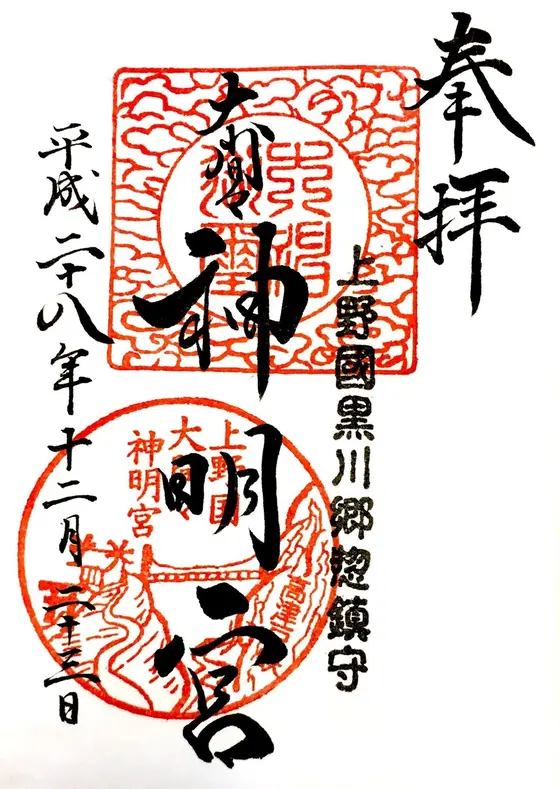 奉拝
上野國黒川郷惣鎮守
大間々
神明宮
平成二十八年十二月二十三日
上野国
大間々
神明宮
高津戸